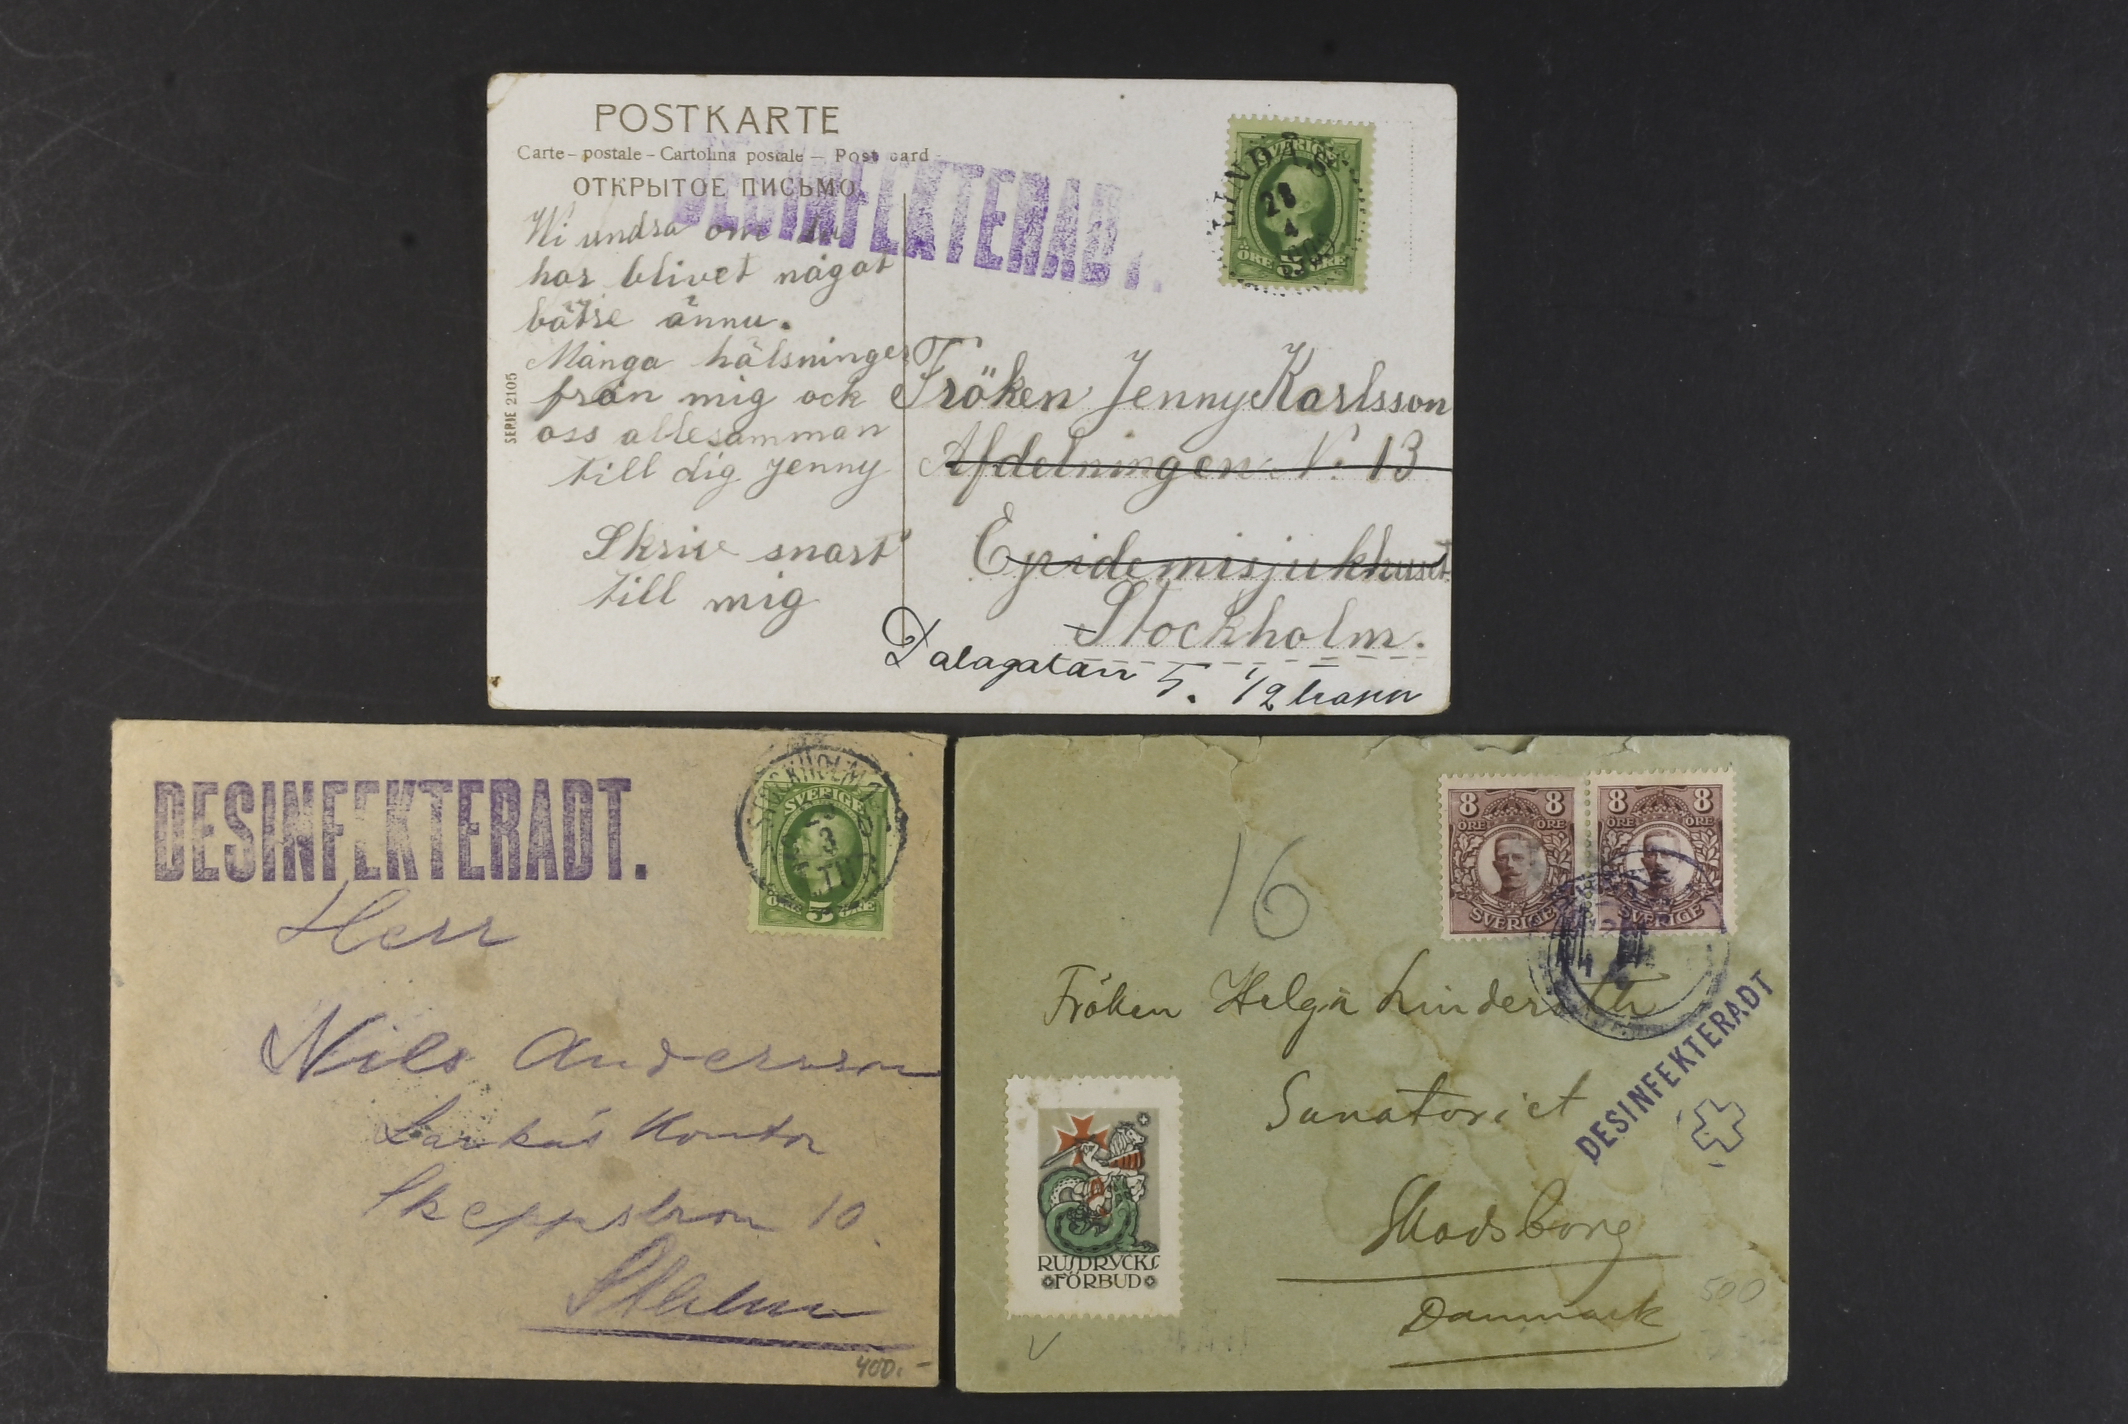 POSTKARTE
Carte - postale - Cartolina postale - Post card
ОТКРЫТОЕ ПИСЬМО
DESINFEKTERADT.
SVERIGE
5
ÖRE ÖRE
28
4
Wi undra om du
har blivet något
bätre ännu.
Många hälsninger
från mig ock
oss allesamman
till dig Jenny
Skriv snart
till mig
SERIE 2105
Fröken Jenny Karlsson
Afdelningen N: 13
Epidemisjukhuset
Stockholm.
Dalagatan 5. 1/2 trapp
DESINFEKTERADT.
STOCKHOLM
SVERIGE
5
ÖRE ÖRE
Herr
Nils Andersson
Kontor
10
Sthlm
400.-
8 8
ÖRE ÖRE
SVERIGE
8 8
ÖRE ÖRE
SVERIGE
16
Fröken Helga
Sanatoriet
Skodsborg
Danmark
DESINFEKTERADT
RUSDRYCKS
FÖRBUD
500